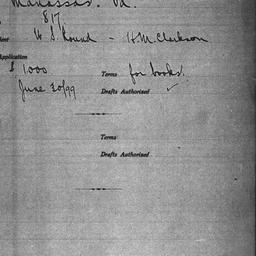 Manassas. Va.
817
W. S. Round - H.M. Clarkson
Application
$ 1,000 Terms for books.
June 20/99 Drafts Authorized ✓
Terms
Drafts Authorized